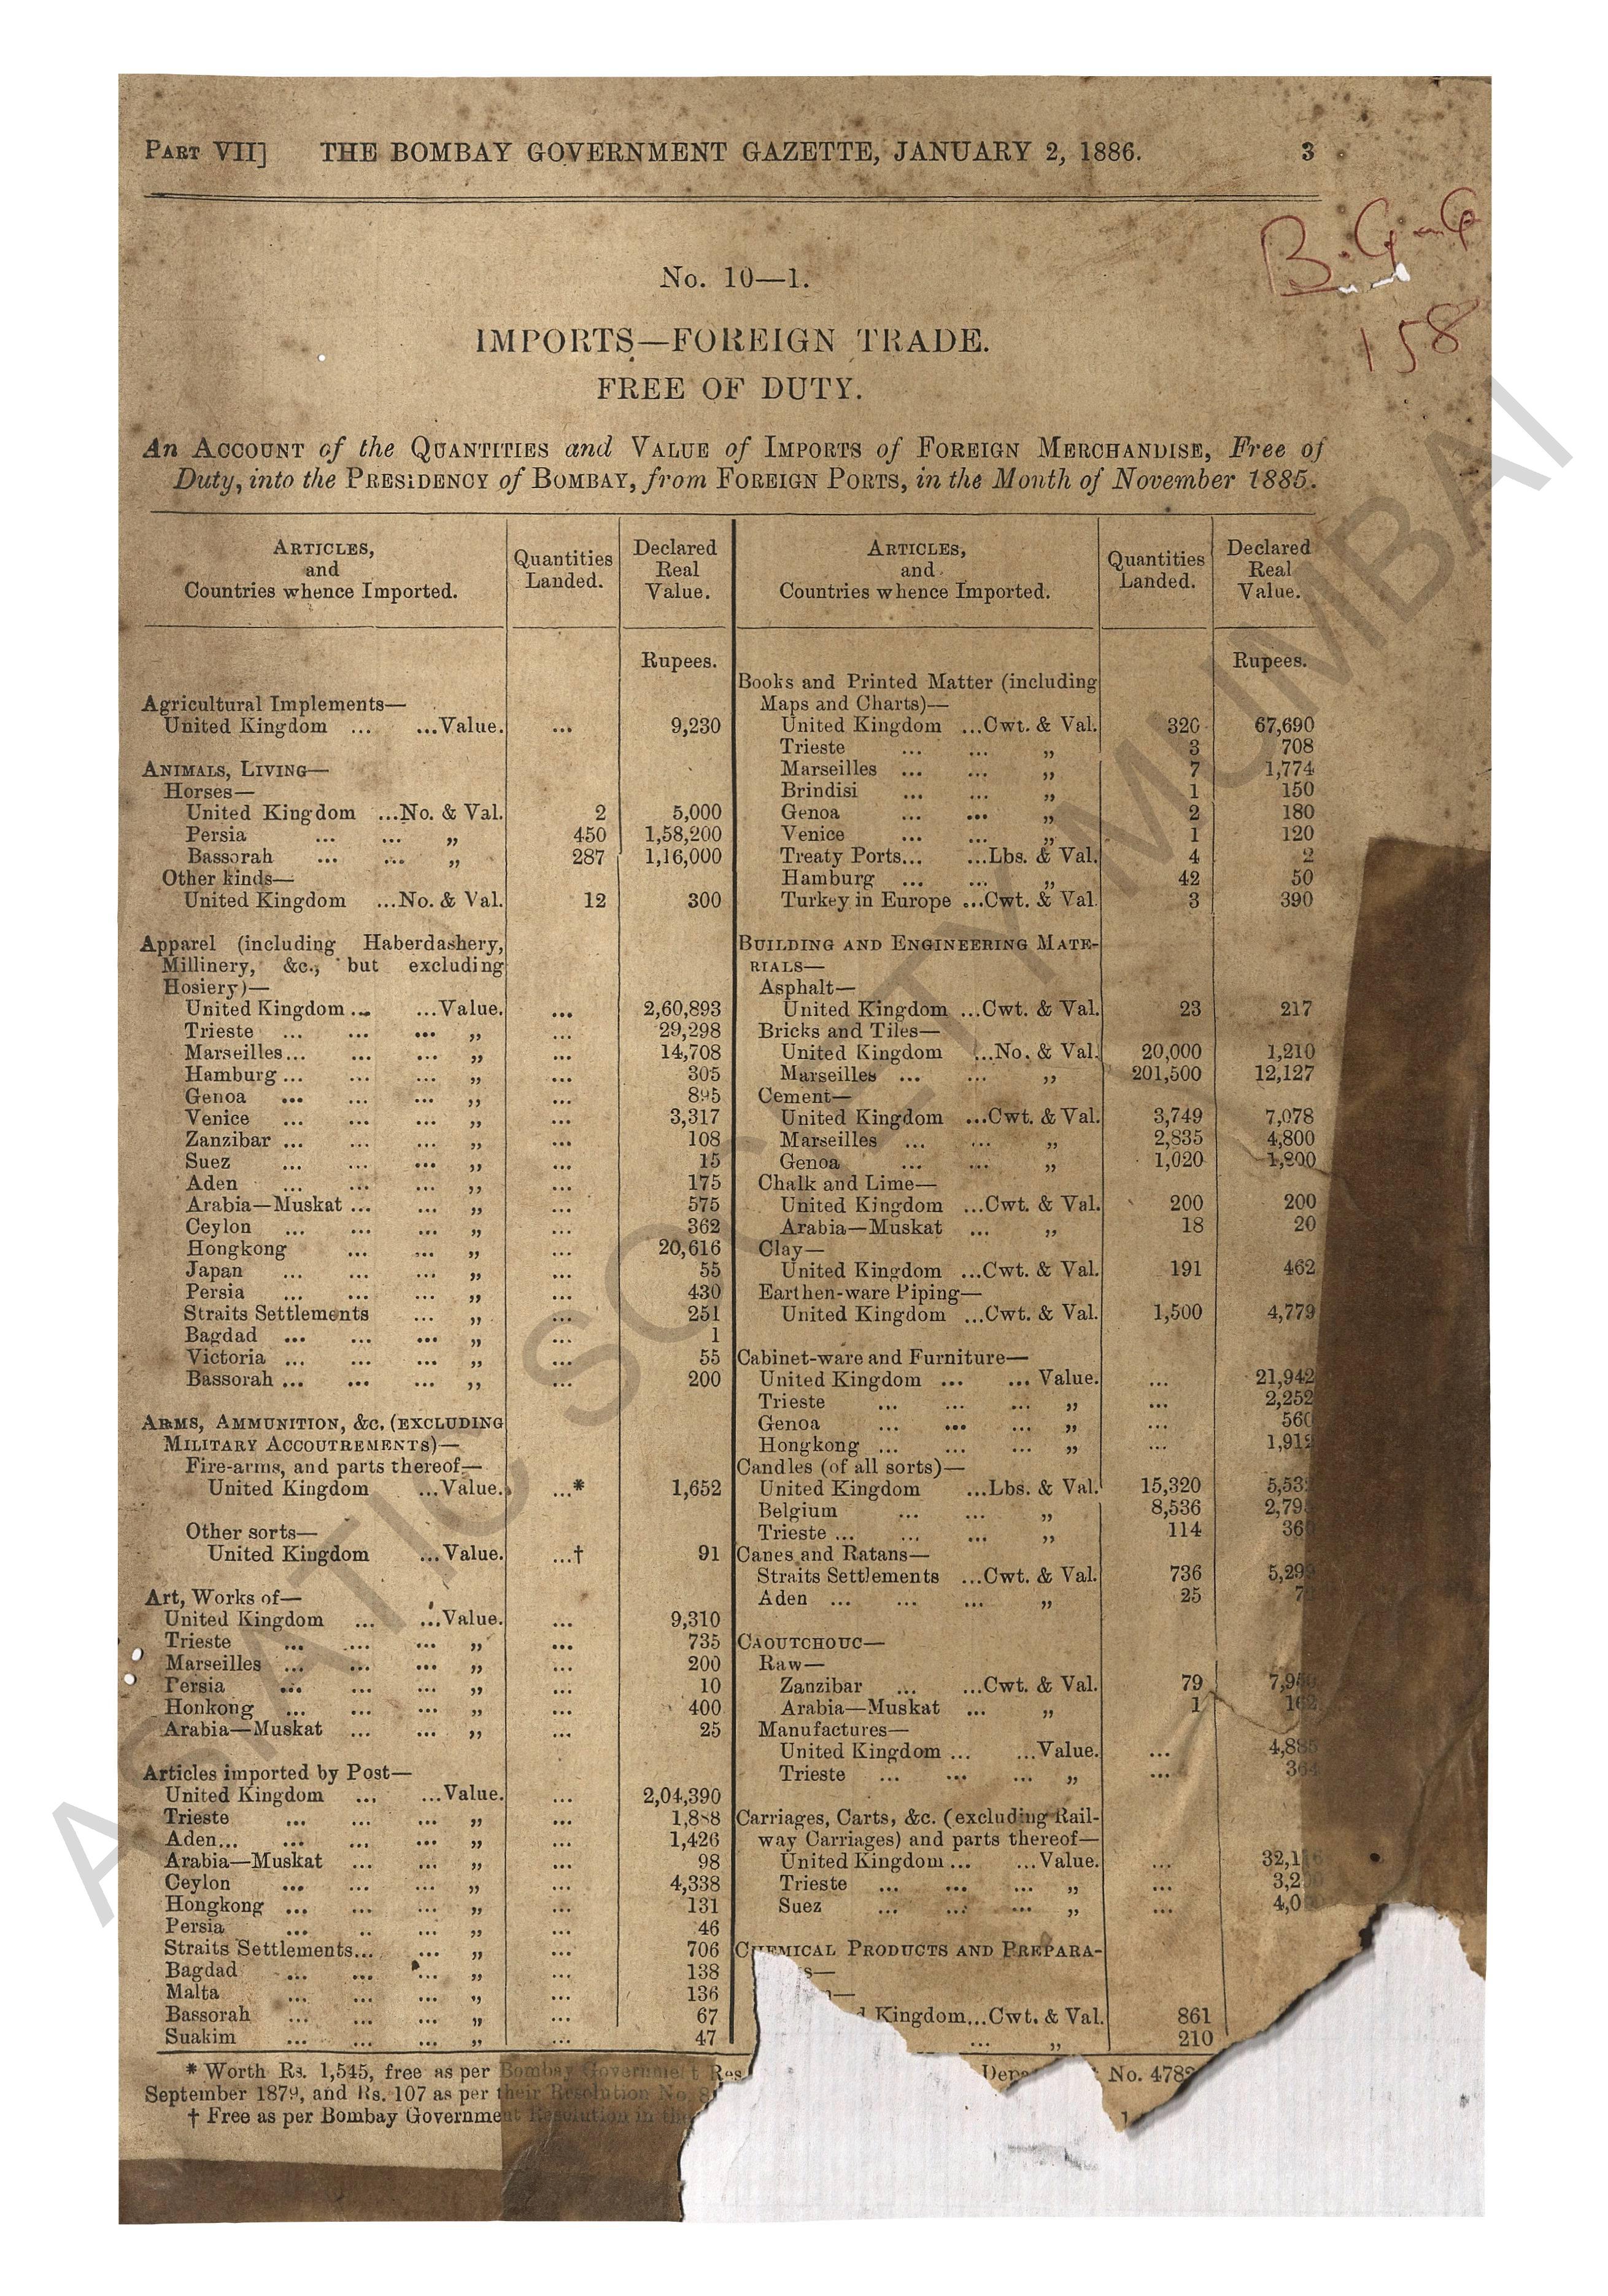 PART VII] THE BOMBAY GOVERNMENT GAZETTE, JANUARY 2, 1886. 3
B. G. G
158
No. 10—1.
IMPORTS—FOREIGN TRADE.
FREE OF DUTY.
An ACCOUNT of the QUANTITIES and VALUE of IMPORTS of FOREIGN MERCHANDISE, Free of
Duty, into the PRESIDENCY of BOMBAY, from FOREIGN PORTS, in the Month of November 1885.
ARTICLES,
and
Countries whence Imported.
Quantities
Landed.
Declared
Real
Value.
Rupees.
Agricultural Implements—
United Kingdom ... ...Value. ... 9,230
ANIMALS, LIVING—
Horses—
United Kingdom ...No. & Val. 2 5,000
Persia ... ... „ 450 1,58,200
Bassorah ... ... „ 287 1,16,000
Other kinds—
United Kingdom ...No. & Val. 12 300
Apparel (including Haberdashery,
Millinery, &c., but excluding
Hosiery)—
United Kingdom ... ...Value. ... 2,60,893
Trieste ... ... ... „ ... 29,298
Marseilles... ... ... „ ... 14,708
Hamburg ... ... ... „ ... 305
Genoa ... ... ... „ ... 895
Venice ... ... ... „ ... 3,317
Zanzibar ... ... ... „ ... 108
Suez ... ... ... „ ... 15
Aden ... ... ... „ ... 175
Arabia—Muskat ... ... „ ... 575
Ceylon ... ... ... „ ... 362
Hongkong ... ... „ ... 20,616
Japan ... ... ... „ ... 55
Persia ... ... ... „ ... 430
Straits Settlements ... „ ... 251
Bagdad ... ... ... „ ... 1
Victoria ... ... ... „ ... 55
Bassorah ... ... ... „ ... 200
ARMS, AMMUNITION, &c. (EXCLUDING
MILITARY ACCOUTREMENTS)—
Fire-arms, and parts thereof—
United Kingdom ...Value. ...* 1,652
Other sorts—
United Kingdom ...Value. ...† 91
Art, Works of—
United Kingdom ... ...Value. ... 9,310
Trieste ... ... ... „ ... 735
Marseilles ... ... ... „ ... 200
Persia ... ... ... „ ... 10
Honkong ... ... ... „ ... 400
Arabia—Muskat ... ... „ ... 25
Articles imported by Post—
United Kingdom ... ...Value. ... 2,04,390
Trieste ... ... ... „ ... 1,888
Aden... ... ... ... „ ... 1,426
Arabia—Muskat ... ... „ ... 98
Ceylon ... ... ... „ ... 4,338
Hongkong ... ... ... „ ... 131
Persia ... .. ... „ ... 46
Straits Settlements... ... „ ... 706
Bagdad ... ... ... „ ... 138
Malta ... ... ... „ ... 136
Bassorah ... ... ... „ ... 67
Suakim ... ... ... „ ... 47
ARTICLES,
and
Countries whence Imported.
Quantities
Landed.
Declared
Real
Value.
Rupees.
Books and Printed Matter (including
Maps and Charts)—
United Kingdom ...Cwt. & Val. 320 67,690
Trieste ... ... „ 3 708
Marseilles ... ... „ 7 1,774
Brindisi ... ... „ 1 150
Genoa ... ... „ 2 180
Venice ... ... „ 1 120
Treaty Ports... ...Lbs. & Val. 4 2
Hamburg ... ... „ 42 50
Turkey in Europe ...Cwt. & Val. 3 390
BUILDING AND ENGINEERING MATE-
RIALS—
Asphalt—
United Kingdom ...Cwt. & Val. 23 217
Bricks and Tiles—
United Kingdom ...No. & Val. 20,000 1,210
Marseilles ... ... „ 201,500 12,127
Cement—
United Kingdom ...Cwt. & Val. 3,749 7,078
Marseilles ... ... „ 2,835 4,800
Genoa ... ... „ 1,020 1,800
Chalk and Lime—
United Kingdom ...Cwt. & Val. 200 200
Arabia—Muskat ... „ 18 20
Clay—
United Kingdom ...Cwt. & Val. 191 462
Earthen-ware Piping—
United Kingdom ...Cwt. & Val. 1,500 4,779
Cabinet-ware and Furniture—
United Kingdom ... ... Value. ... 21,942
Trieste ... ... ... „ ... 2,252
Genoa ... ... ... „ ... 560
Hongkong ... ... ... „ ... 1,912
Candles (of all sorts)—
United Kingdom ...Lbs. & Val. 15,320
Belgium ... ... „ 8,536
Trieste ... ... ... „ 114
Canes and Ratans—
Straits Settlements ...Cwt. & Val. 736 5,299
Aden ... ... ... „ 25
CAOUTCHOUC—
Raw—
Zanzibar ... ...Cwt. & Val. 79
Arabia—Muskat ... „ 1 162
Manufactures—
United Kingdom ... ...Value. ... 4,885
Trieste ... ... ... „ ... 364
Carriages, Carts, &c. (excluding Rail-
way Carriages) and parts thereof—
United Kingdom ... ...Value. ...
Trieste ... ... ... „ ...
Suez ... ... ... „ ...
CHEMICAL PRODUCTS AND PREPARA-
Kingdom...Cwt. & Val. 861
... „ 210
* Worth Rs. 1,545, free as per Bombay Government Res No. 4782
September 1879, and Rs. 107 as per their Resolution No.
† Free as per Bombay Government Resolution in the
ASIATIC SOCIETY MUMBAI